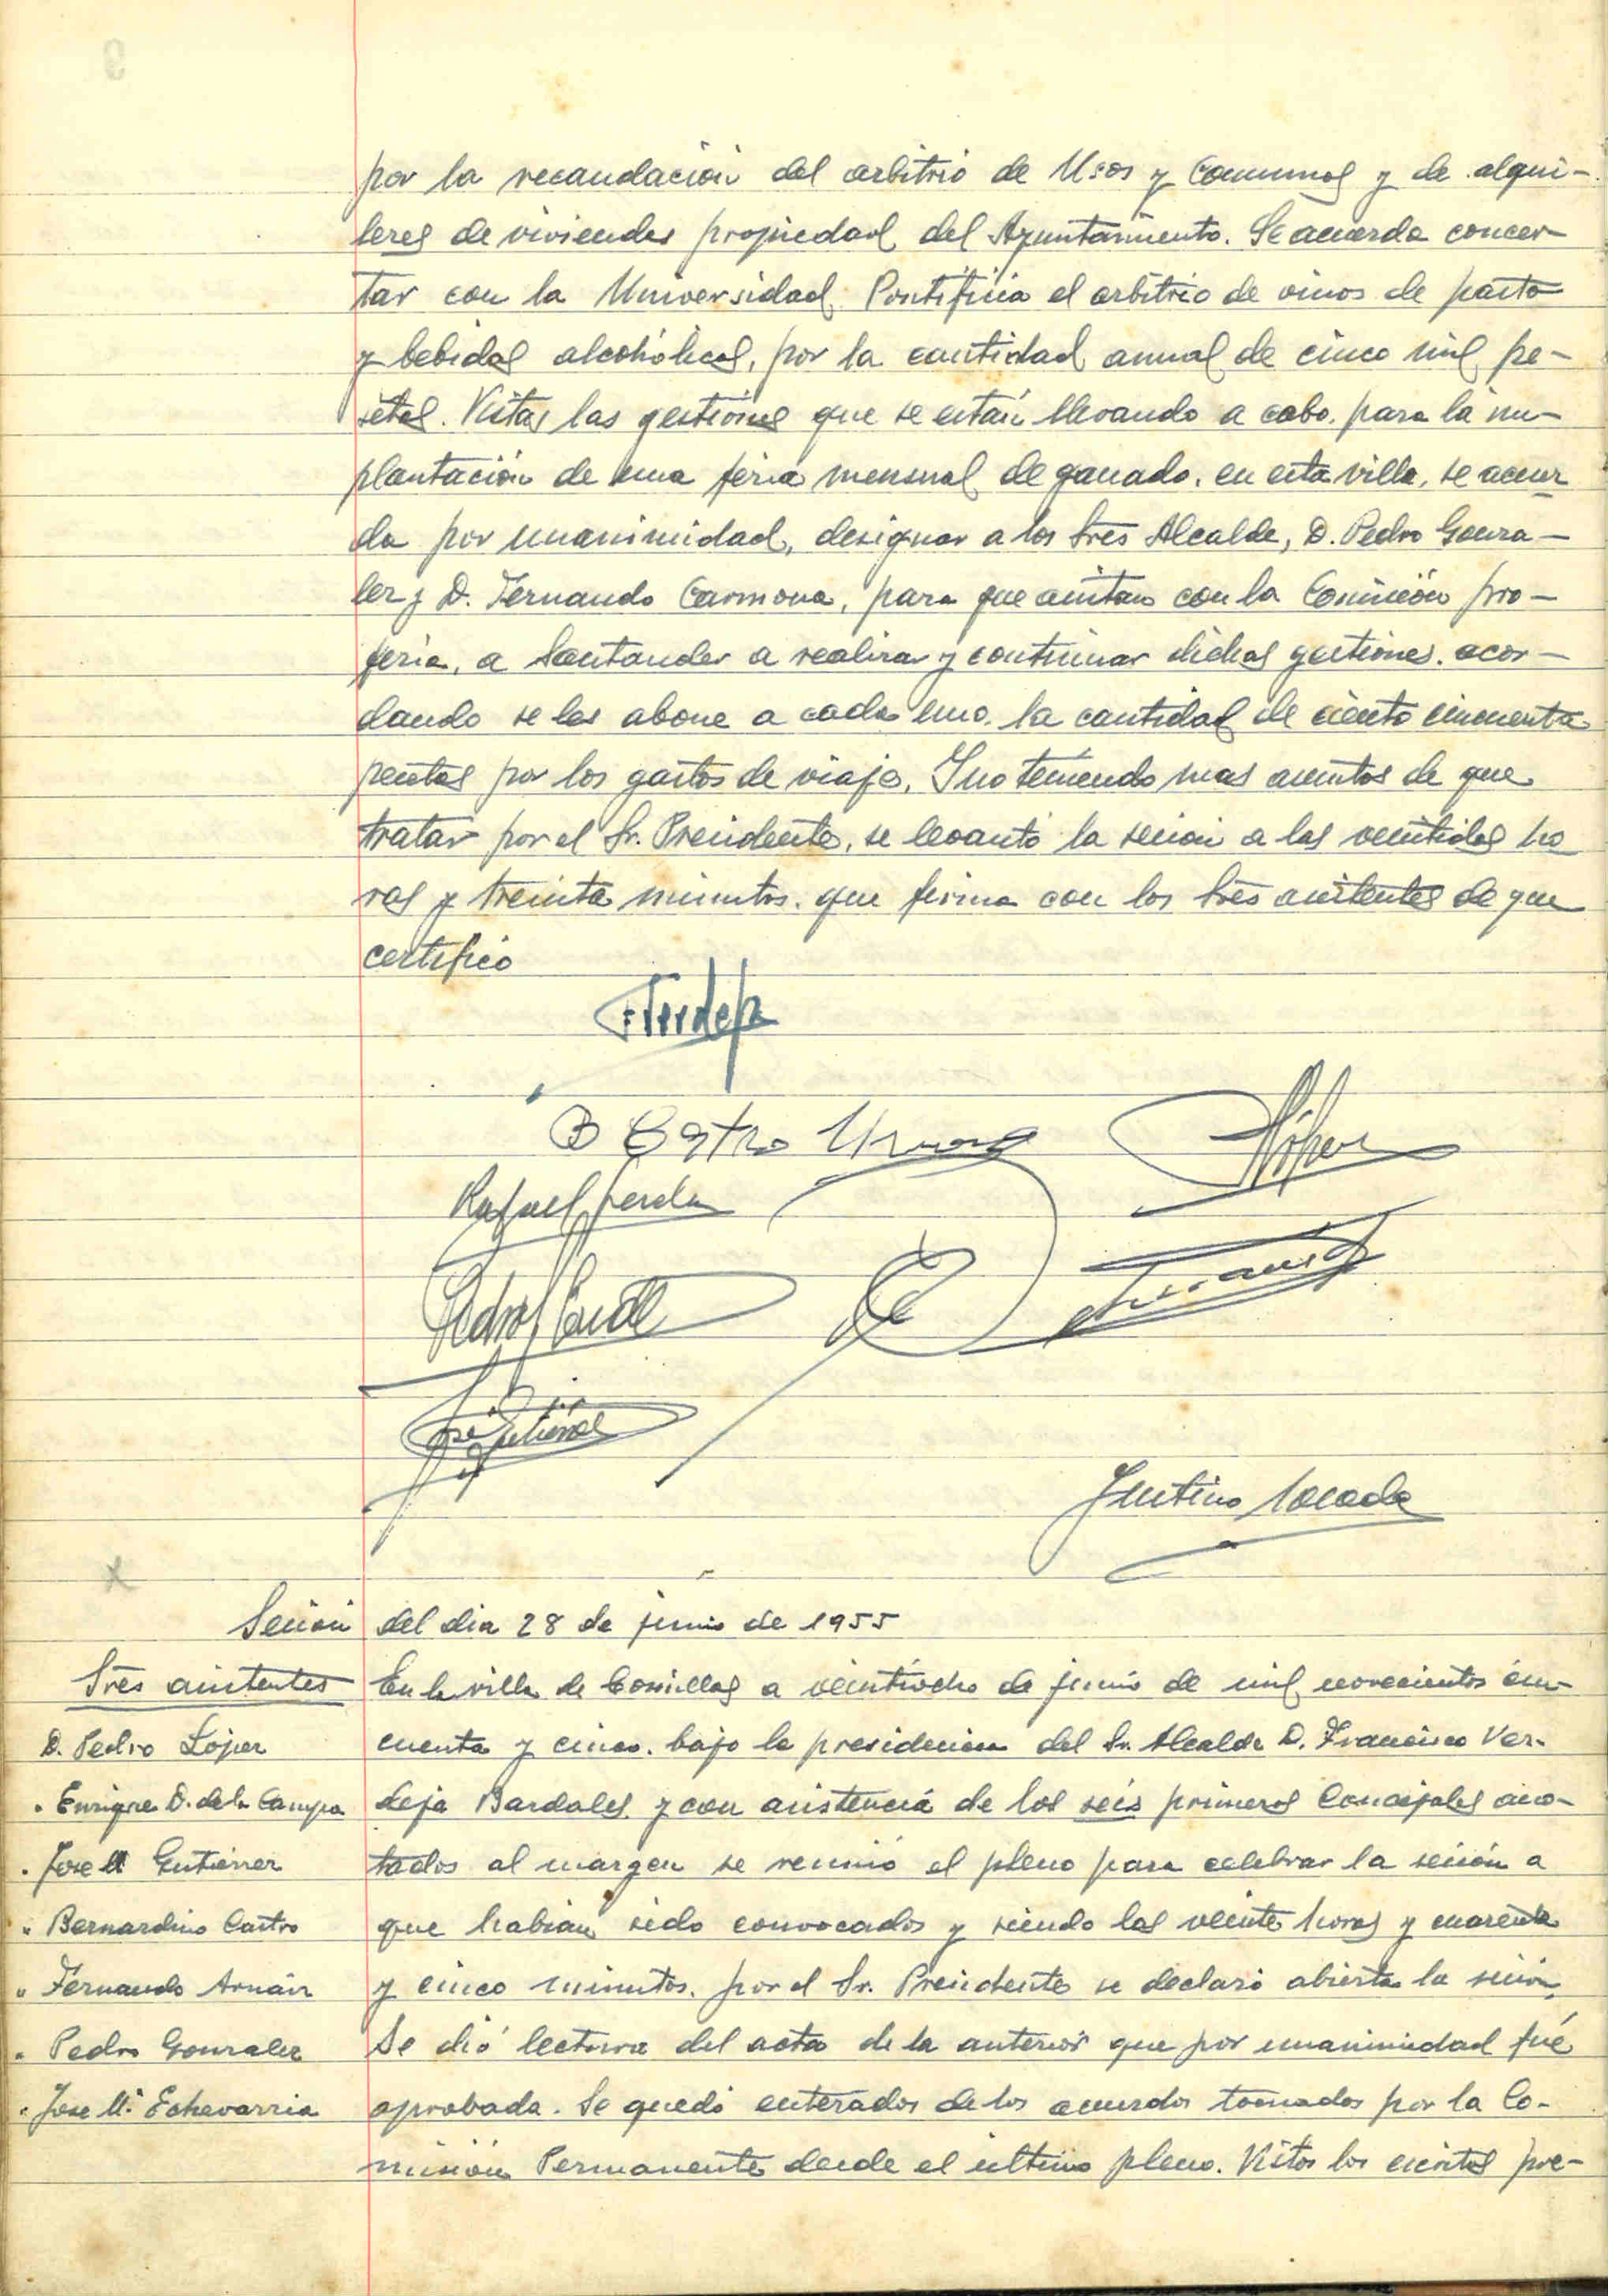 por la recaudación del arbitrio de Usos y Comunes y de alqui-
leres de viviendas propiedad del Ayuntamiento. Se acuerda concer-
tar con la Universidad Pontificia el arbitrio de vinos de pasto
y bebidas alcohólicas, por la cantidad anual de cinco mil pe-
setas. Vistas las gestiones que se están llevando a cabo para la im-
plantación de una feria mensual de ganado, en esta villa, se acuer
da por unanimidad, designar a los Sres Alcalde, D. Pedro Gonza-
lez y D. Fernando Carmona, para que asistan con la Comisión pro-
feria, a Santander a realizar y continuar dichas gestiones. acor-
dando se les abone a cada uno la cantidad de ciento cincuenta
pesetas por los gastos de viaje. Y no teniendo mas asuntos de que
tratar por el Sr. Presidente, se levantó la sesion a las veintidos ho
ras y treinta minutos. que firma con los Sres asistentes de que
certifico
F Verdeja
B Castro
López
Rafael
Pedro
José Gutiérrez
Justino
Sesión del dia 28 de junio de 1955
Sres asistentes
D. Pedro López
" Enrique D. de la Campa
" Jose Mª Gutiérrez
" Bernardino Castro
" Fernando Arnáiz
" Pedro Gonzalez
" Jose Mª Echevarria
En la villa de Comillas a veintiocho de junio de mil novecientos cin-
cuenta y cinco. bajo la presidencia del Sr. Alcalde D. Francisco Ver-
deja Bardales y con asistencia de los seis primeros Concejales ano-
tados al margen se reunió el pleno para celebrar la sesión a
que habian sido convocados y siendo las veinte horas y cuarenta
y cinco minutos. por el Sr. Presidente se declaró abierta la sesion.
Se dió lectura del acta de la anterior que por unanimidad fué
aprobada. Se quedó enterados de los acuerdos tomados por la Co-
misión Permanente desde el ultimo pleno. Vistos los escritos pre-